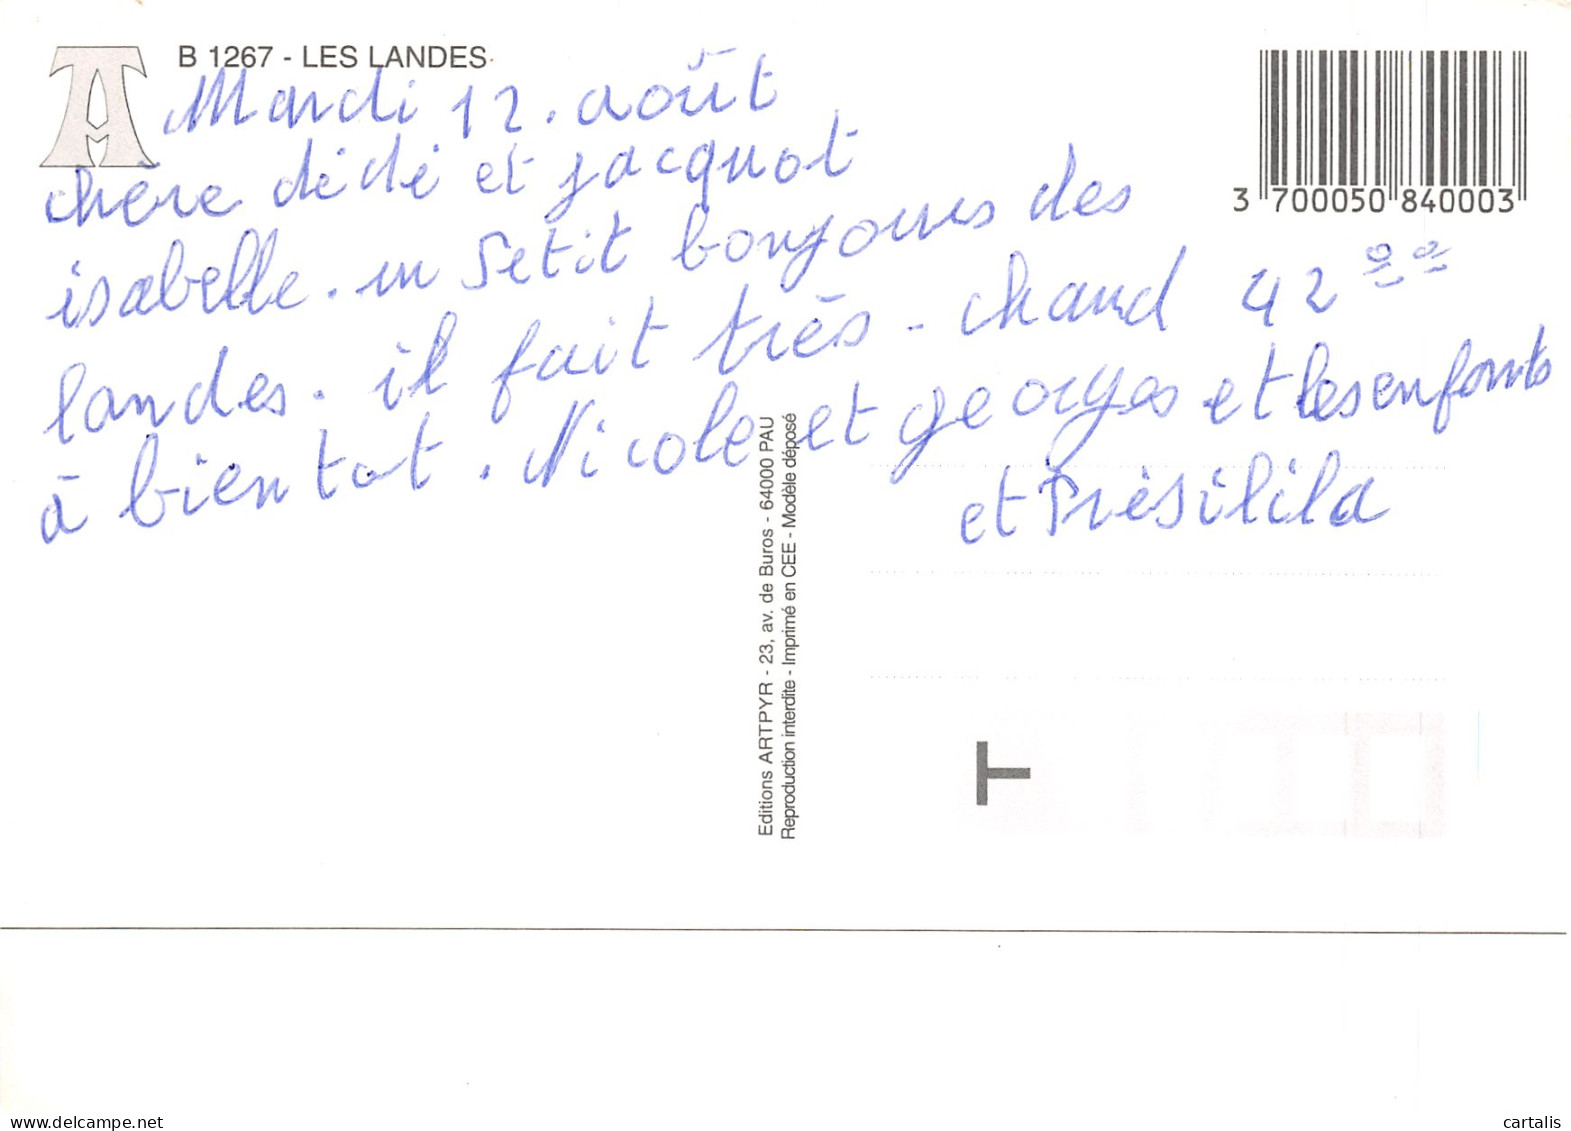 B 1267 - LES LANDES
Mardi 12. août
chère dédé et jacquot
isabelle. un Petit bonjours des
landes. il fait très - chaud 42 °°
à bientot. Nicole et georges et les enfants
et Présilila
3 700050 840003
Editions ARTPYR - 23, av. de Buros - 64000 PAU
Reproduction interdite - Imprimé en CEE - Modèle déposé
T
cartalis